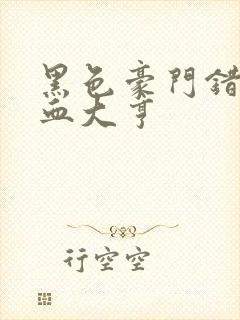 黑色豪門錯
血大亨
行空空